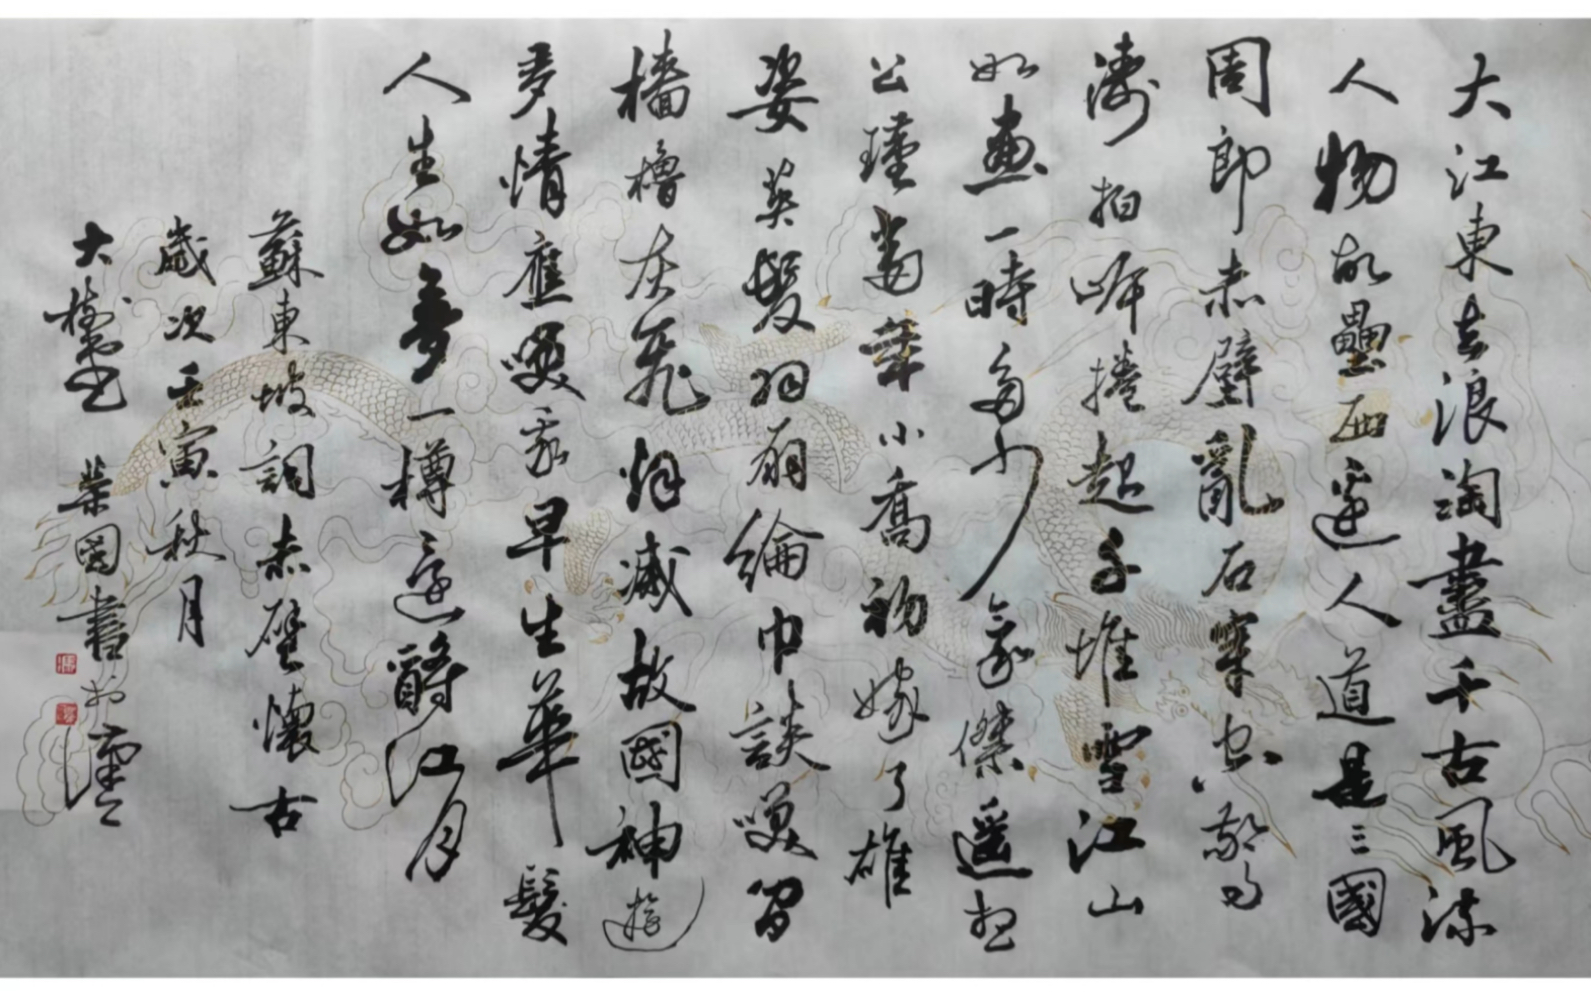 大江東去浪淘盡千古風流
人物故壘西邊人道是三國
周郎赤壁亂石穿空驚
濤拍岸捲起千堆雪江山
如畫一時多少豪傑遙想
公瑾當年小喬初嫁了雄
姿英髮羽扇綸巾談笑間
檣櫓灰飛烟滅故國神遊
多情應笑我早生華髮
人生如夢一樽還酹江月
蘇東坡詞赤壁懷古
歲次壬寅秋月
大 國書於